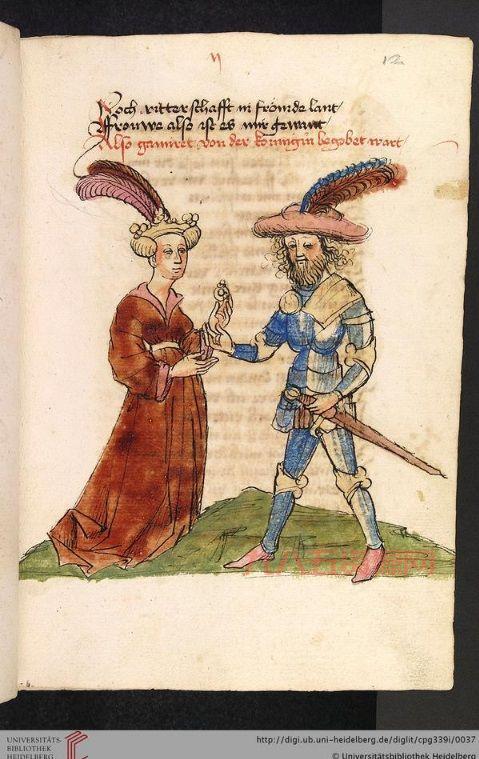 vj
12
Noch ritterschafft in frömde lant
Ffrouwe also ist es mir gewant
Also gamiret von der kunigin begobet wart
UNIVERSITÄTS-
BIBLIOTHEK
HEIDELBERG
http://digi.ub.uni-heidelberg.de/diglit/cpg339i/0037
© Universitätsbibliothek Heidelberg